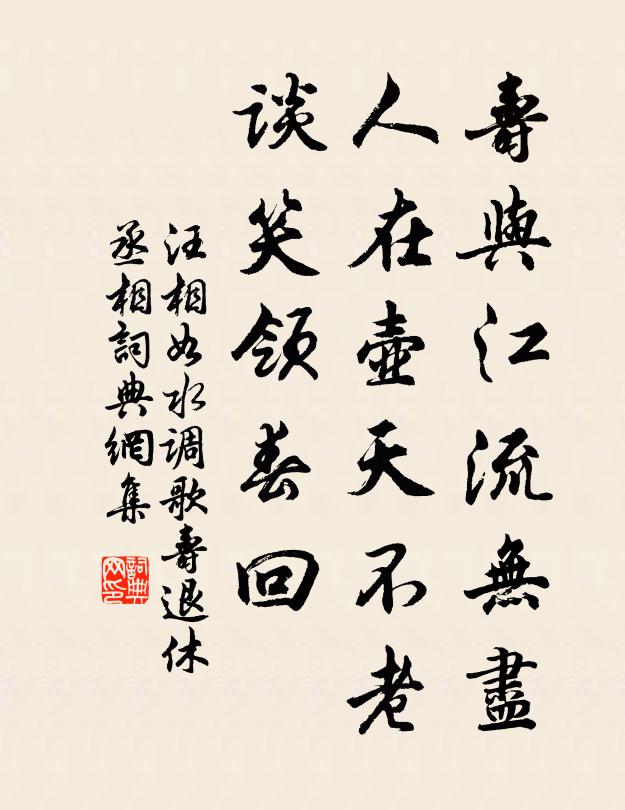 壽與江流無盡
人在壺天不老
谈笑領春回
汪相如水调歌壽退休
丞相詞典網集
詞典网印